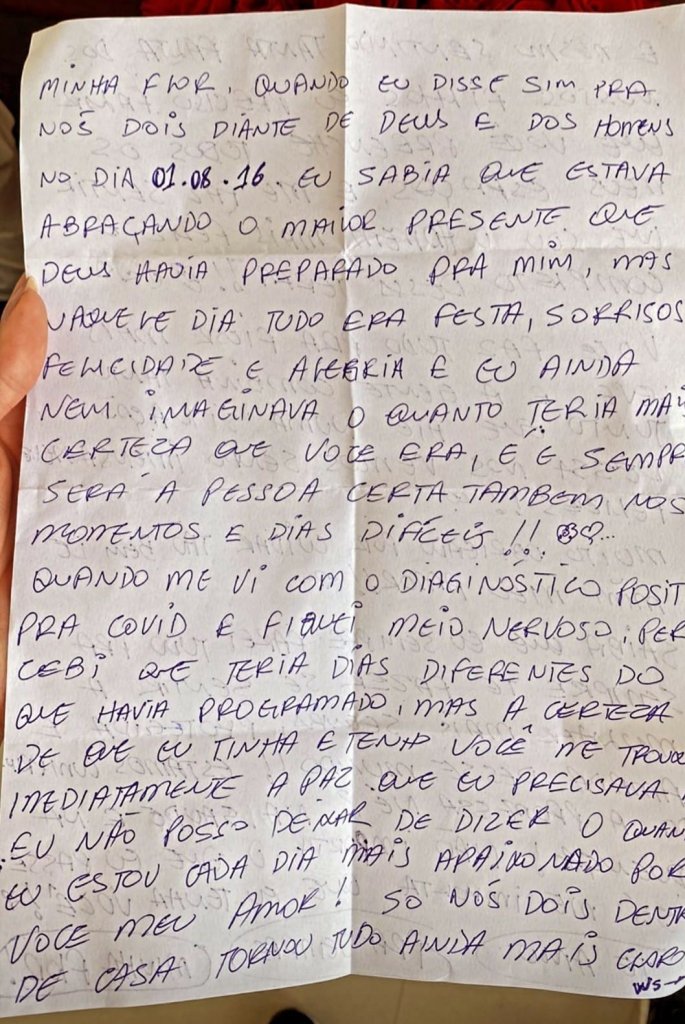 MINHA FLOR, QUANDO EU DISSE SIM PRA
NÓS DOIS DIANTE DE DEUS E DOS HOMENS
NO DIA 01.08.16. EU SABIA QUE ESTAVA
ABRAÇANDO O MAIOR PRESENTE QUE
DEUS HAVIA PREPARADO PRA MIM, MAS
NAQUELE DIA TUDO ERA FESTA, SORRISOS
FELICIDADE E ALEGRIA E EU AINDA
NEM IMAGINAVA O QUANTO TERIA MAIS
CERTEZA QUE VOCÊ ERA, E É SEMPR
SERÁ A PESSOA CERTA TAMBEM NOS
MOMENTOS E DIAS DIFÍCEIS!!
QUANDO ME VI COM O DIAGINOSTICO POSIT
PRA COVID E FIQUEI MEIO NERVOSO, PER
CEBI QUE TERIA DIAS DIFERENTES DO
QUE HAVIA PROGRAMADO, MAS A CERTEZA
DE QUE EU TINHA E TENHO VOCÊ ME TROUXE
IMEDIATAMENTE A PAZ QUE EU PRECISAVA,
EU NÃO POSSO DEIXAR DE DIZER O QUAN
EU ESTOU CADA DIA MAIS APAIXONADO POR
VOCE MEU AMOR! SO NÓS DOIS DENTR
DE CASA TORNOU TUDO AINDA MAIS CLARO
WS